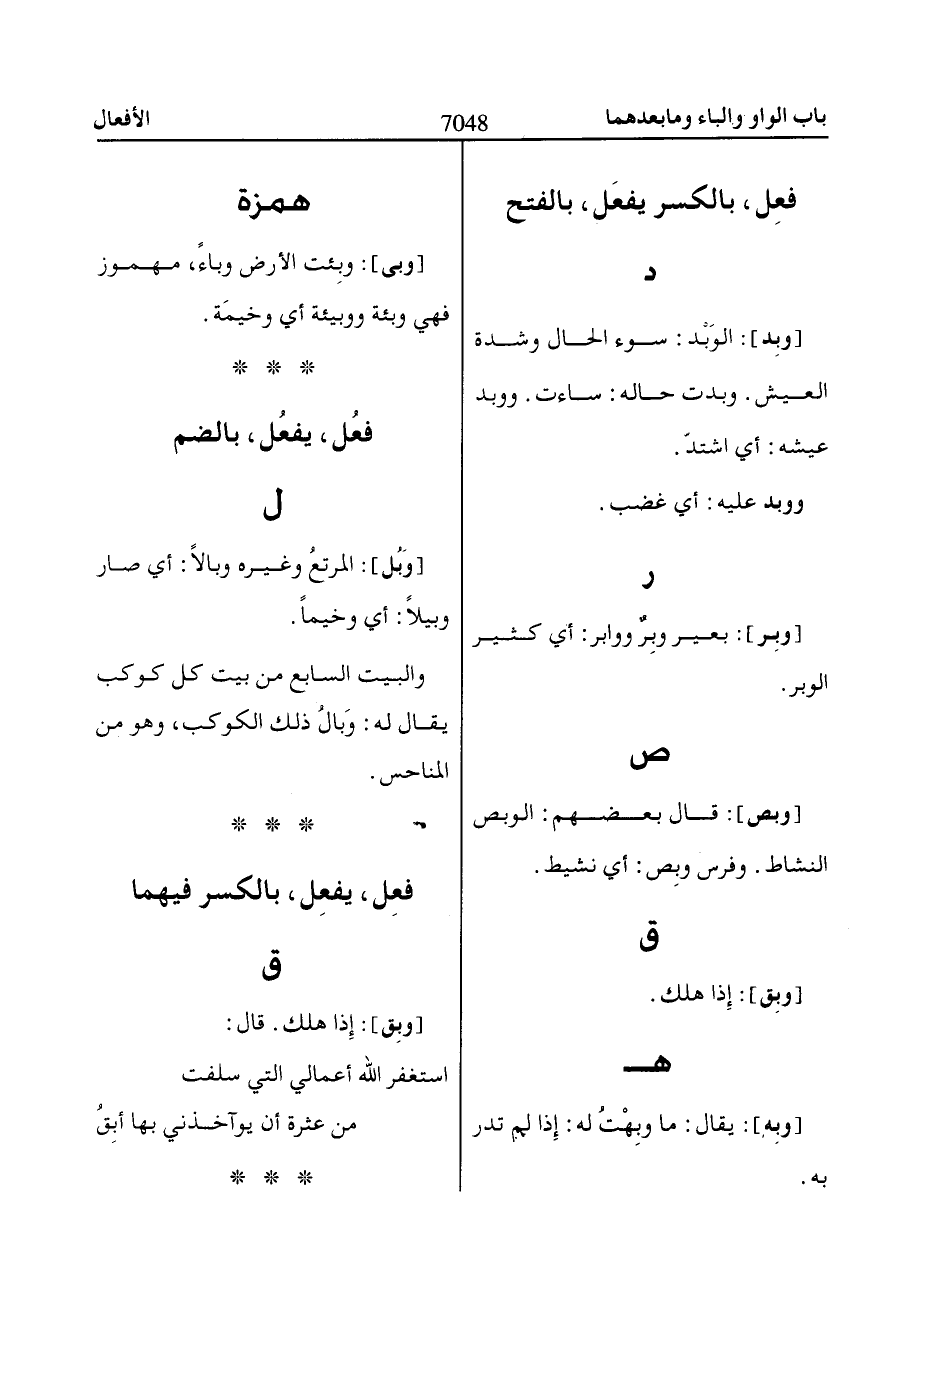 باب الواو والباء وما بعدهما
7048
الأفعال
فعِل، بالكسر يفعَل، بالفتح
د
[وبِد]: الوَبَد: سوء الحال وشدة
العيش. وبدت حاله: ساءت. ووبد
عيشه: أي اشتدّ.
ووبد عليه: أي غضب.
ر
[وبِر]: بعير وبِرٌ ووابر: أي كثير
الوبر.
ص
[وبِص]: قال بعضهم: الوبص
النشاط. وفرس وبِص: أي نشيط.
ق
[وبِق]: إذا هلك.
هـ
[وبِه]: يقال: ما وبِهْتُ له: إذا لم تدر
به.
همزة
[وبى]: وبِئت الأرض وباءً، مهموز
فهي وبئة ووبيئة أي وخيمَة.
* * *
فعُل، يفعُل، بالضم
ل
[وَبُل]: المرتعُ وغيره وبالاً: أي صار
وبيلاً: أي وخيماً.
والبيت السابع من بيت كل كوكب
يقال له: وَبالُ ذلك الكوكب، وهو من
المناحس.
* * *
فعِل، يفعِل، بالكسر فيهما
ق
[وبِق]: إذا هلك. قال:
استغفر الله أعمالي التي سلفت
من عثرة أن يوآخذني بها أبِقُ
* * *